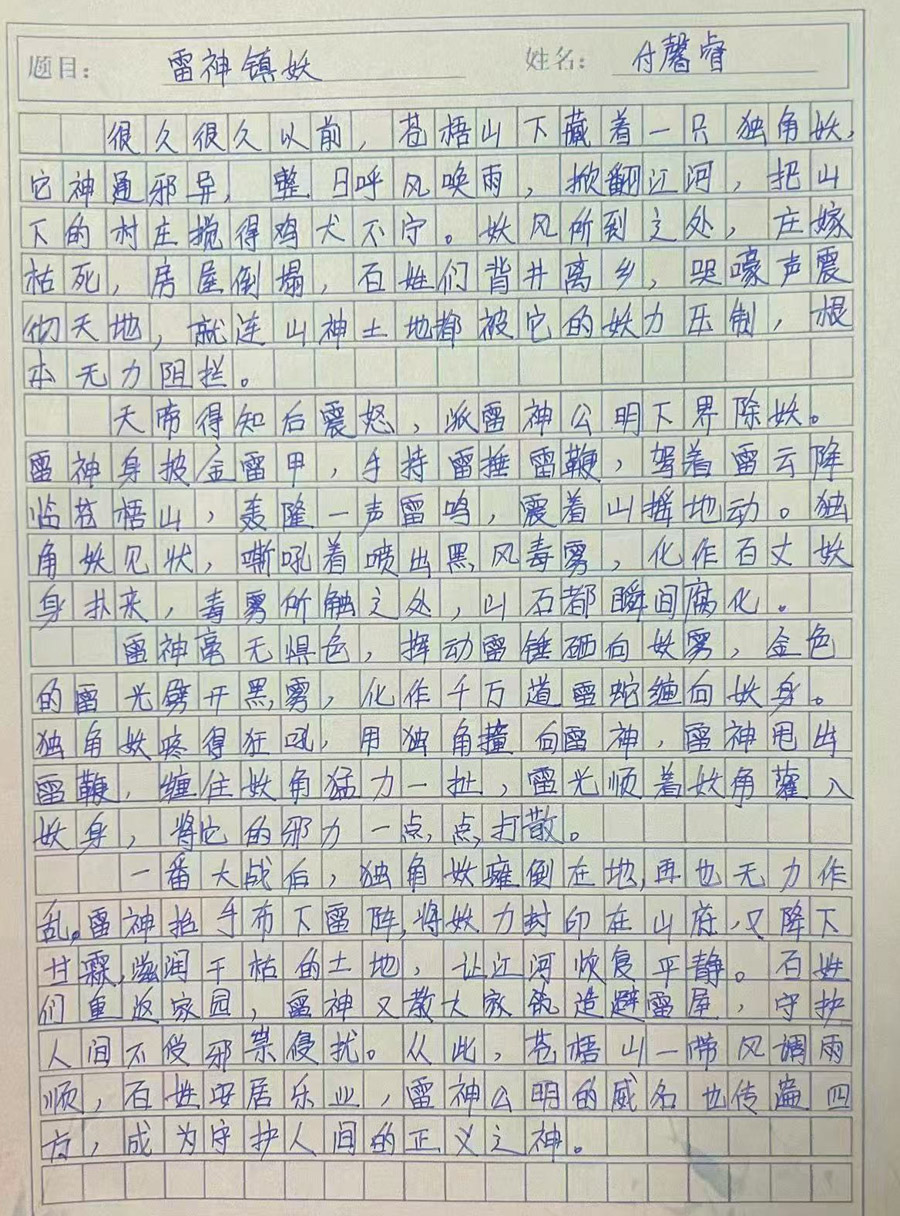 题目：雷神镇妖 姓名：付馨睿
很久很久以前，苍梧山下藏着一只独角妖，
它神通邪异，整日呼风唤雨，掀翻江河，把山
下的村庄搅得鸡犬不宁。妖风所到之处，庄嫁
枯死，房屋倒塌，百姓们背井离乡，哭嚎声震
彻天地，就连山神土地都被它的妖力压制，根
本无力阻拦。
天帝得知后震怒，派雷神公明下界除妖。
雷神身披金雷甲，手持雷捶雷鞭，驾着雷云降
临苍梧山，轰隆一声雷鸣，震着山摇地动。独
角妖见状，嘶吼着喷出黑风毒雾，化作百丈妖
身扑来，毒雾所触之处，山石都瞬间腐化。
雷神毫无惧色，挥动雷锤砸向妖雾，金色
的雷光劈开黑雾，化作千万道雷蛇缠向妖身。
独角妖疼得狂吼，用独角撞向雷神，雷神甩出
雷鞭，缠住妖角猛力一扯，雷光顺着妖角灌入
妖身，将它的邪力一点点打散。
一番大战后，独角妖瘫倒在地，再也无力作
乱。雷神抬手布下雷阵，将妖力封印在山底，又降下
甘霖，滋润干枯的土地，让江河恢复平静。百姓
们重返家园，雷神又教大家筑造避雷屋，守护
人间不受邪祟侵扰。从此，苍梧山一带风调雨
顺，百姓安居乐业，雷神公明的威名也传遍四
方，成为守护人间的正义之神。